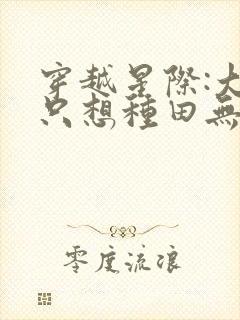 穿越星際:大
只想種田無
零度流浪